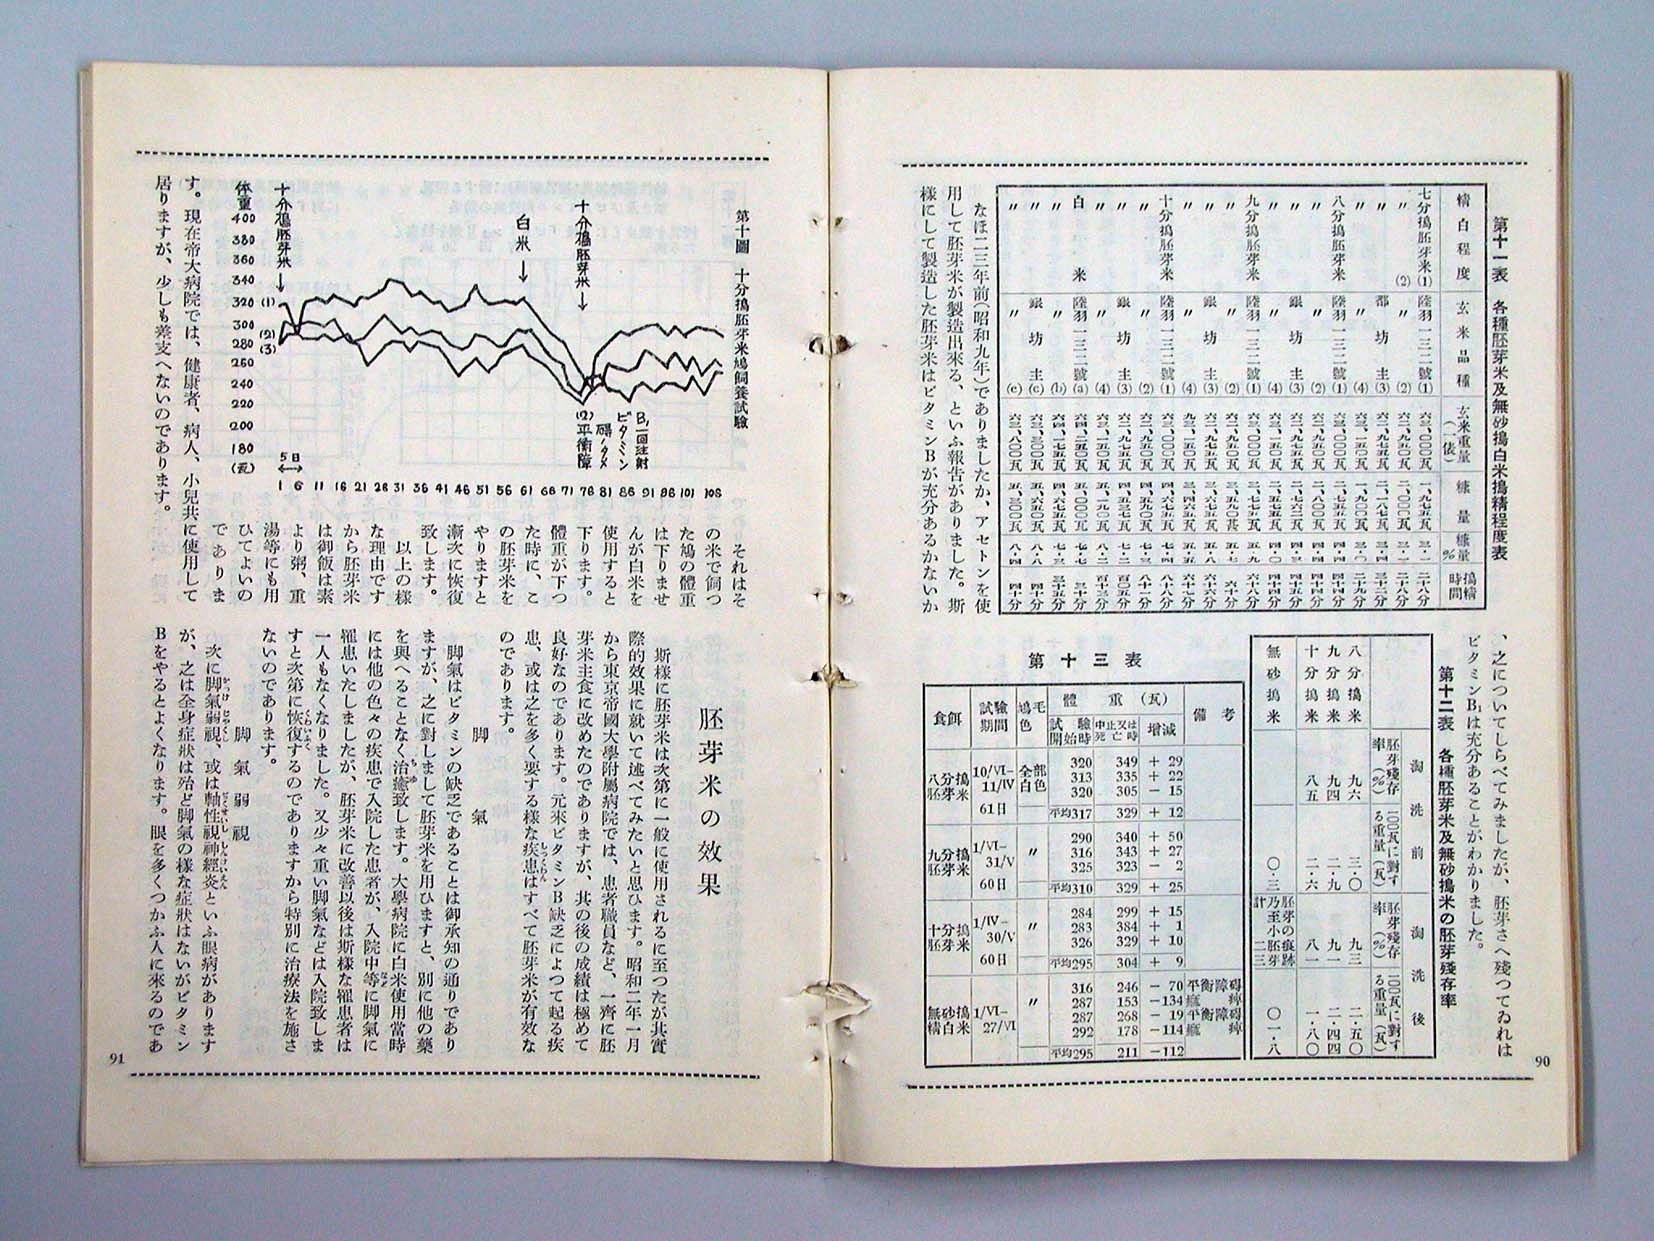 第十一表 各種胚芽米及無砂搗白米搗精程度表
精白程度 玄米品種 玄米重量(一俵) 糠量 糠量% 搗精時間
七分搗胚芽米(1) 陸羽一三二號(1) 六三、〇〇〇瓦 一、九七五瓦 三・一 二十八分
〃(2) 〃(2) 六二、九五〇瓦 二、〇〇〇瓦 二十八分
〃 都坊主(3) 六二、九七五瓦 二、一八七瓦 三・四 三十二分
〃 〃(4) 六三、〇〇〇瓦 一、九〇〇瓦 三・〇 二十九分
八分搗胚芽米 陸羽一三二號(1) 六三、〇〇〇瓦 四十四分
〃 〃(2) 六二、九五〇瓦 二、八〇〇瓦 四十分
〃 銀坊主(3) 四十四分
〃 〃(4) 四十四分
九分搗胚芽米 陸羽一三二號(1) 六三、〇〇〇瓦
〃 〃(2) 六十分
〃 銀坊主(3) 六十六分
〃 〃(4) 六十七分
十分搗胚芽米 陸羽一三二號(1) 六三、〇〇〇瓦 八十八分
〃 〃(2) 六二、九五〇瓦 八十一分
〃 銀坊主(3) 六二、九七五瓦 百〇五分
〃 〃(4) 六三、一五〇瓦 百十三分
白米 陸羽一三二號(a) 五、〇〇〇瓦 三十分
〃 〃(b) 三十五分
〃 銀坊主(c) 四十分
〃 〃(c) 四十分
なほ二三年前(昭和九年)でありましたか、アセトンを使
用して胚芽米が製造出來る、といふ報告がありました。斯
樣にして製造した胚芽米はビタミンBが充分あるかないか
、之についてしらべてみましたが、胚芽さへ殘つてゐれは
ビタミンB₁は充分あることがわかりました。
第十二表 各種胚芽米及無砂搗米の胚芽殘存率
淘洗前 淘洗後
胚芽殘存率(%) 一〇〇瓦に對する重量(瓦) 胚芽殘存率(%) 一〇〇瓦に對する重量(瓦)
八分搗米 九六 三・〇 九三 二・五〇
九分搗米 九四 二・九 九一 二・四四
十分搗米 八五 二・六 八一 一・八〇
無砂搗米 〇・三 胚芽の痕跡乃至小胚芽計二三 〇一・八
第十三表
食餌 試驗期間 鳩毛色 體重(瓦) 備考
試驗開始時 中止又は死亡時 增減
八分搗胚芽米 10/VI-11/IV 61日 全部白色
320 349 +29
313 335 +22
320 305 -15
平均317 329 +12
九分搗胚芽米 1/VI-31/V 60日 〃
290 340 +50
316 343 +27
325 323 -2
平均310 329 +25
十分搗胚芽米 1/IV-30/V 60日 〃
284 299 +15
283 384 +1
326 329 +10
平均295 304 +9
無砂搗精白米 1/VI-27/VI 〃
316 246 -70 平衡障碍
287 153 -134 痲痺
287 268 -19 平衡障碍
292 178 -114 痲痺
平均295 211 -112
90
第十圖 十分搗胚芽米鳩飼養試驗
十分搗胚芽米
白米
十分搗胚芽米
体重
400
380
360
340
320
300
280
260
240
220
200
180
(瓦)
(1)
(2)
(3)
5日
(2)平衡障碍ノタメビタミンB₁二回注射
1 6 11 16 21 26 31 36 41 46 51 56 61 66 71 76 81 86 91 96 101 106
それはそ
の米で飼つ
た鳩の體重
は下りませ
んが白米を
使用すると
下ります。
體重が下つ
た時に、こ
の胚芽米を
やりますと
漸次に恢復
致します。
以上の樣
な理由です
から胚芽米
は御飯は素
より粥、重
湯等にも用
ひてよいの
でありま
す。現在帝大病院では、健康者、病人、小兒共に使用して
居りますが、少しも差支へないのであります。
胚芽米の效果
斯樣に胚芽米は次第に一般に使用されるに至つたが其實
際的效果に就いて述べてみたいと思ひます。昭和二年一月
から東京帝國大學附屬病院では、患者職員など、一齊に胚
芽米主食に改めたのでありますが、其の後の成績は極めて
良好なのであります。元來ビタミンB缺乏によつて起る疾
患、或は之を多く要する樣な疾患はすべて胚芽米が有效な
のであります。
脚氣
脚氣はビタミンの缺乏であることは御承知の通りであり
ますが、之に對しまして胚芽米を用ひますと、別に他の藥
を與へることなく治癒致します。大學病院に白米使用當時
には他の色々の疾患で入院した患者が、入院中等に脚氣に
罹患いたしましたが、胚芽米に改善以後は斯樣な罹患者は
一人もなくなりました。又少々重い脚氣などは入院致しま
すと次第に恢復するのでありますから特別に治療法を施さ
ないのであります。
脚氣弱視
次に脚氣弱視、或は軸性視神經炎といふ眼病があります
が、之は全身症狀は殆ど脚氣の樣な症狀はないがビタミン
Bをやるとよくなります。眼を多くつかふ人に來るのであ
91